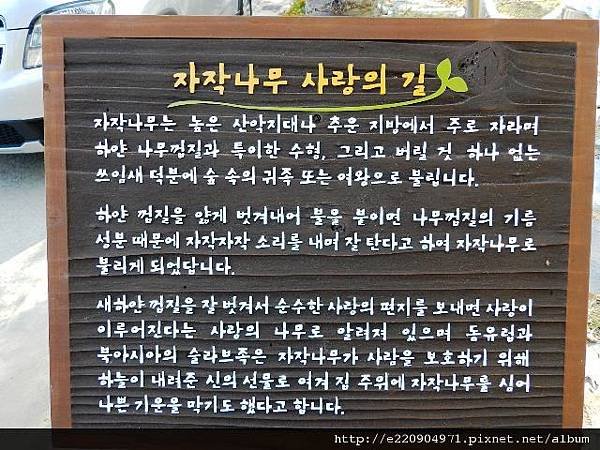 자작나무 사랑의 길
자작나무는 높은 산악지대나 추운 지방에서 주로 자라며
하얀 나무껍질과 특이한 수형, 그리고 버릴 것 하나 없는
쓰임새 덕분에 숲 속의 귀족 또는 여왕으로 불립니다.
하얀 껍질을 얇게 벗겨내어 불을 붙이면 나무껍질의 기름
성분 때문에 자작자작 소리를 내며 잘 탄다고 하여 자작나무로
불리게 되었답니다.
새하얀 껍질을 잘 벗겨서 순수한 사랑의 편지를 보내면 사랑이
이루어진다는 사랑의 나무로 알려져 있으며 동유럽과
북아시아의 슬라브족은 자작나무가 사람을 보호하기 위해
하늘이 내려준 신의 선물로 여겨 집 주위에 자작나무를 심어
나쁜 기운을 막기도 했다고 합니다.
http://e220904971.pixnet.net/album